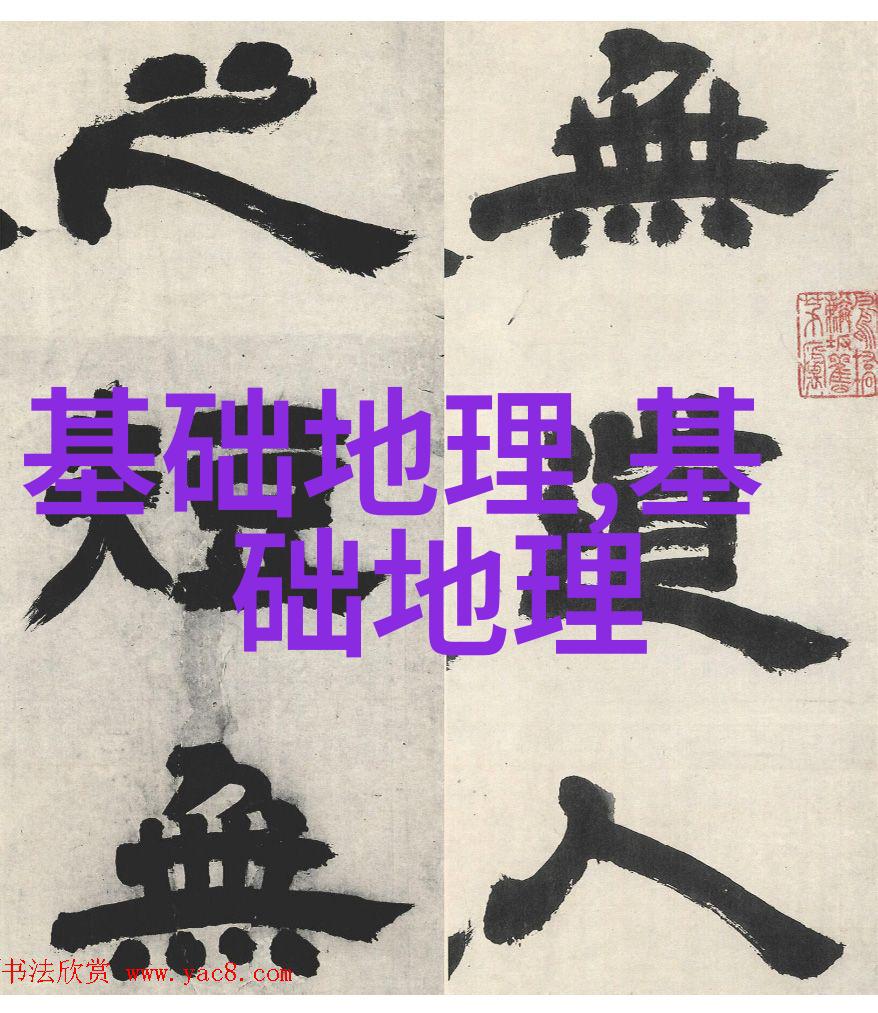 無道人
之短無
基础地理,基
础地理
书法欣赏 www.yac8.com